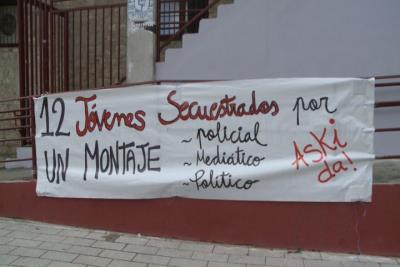 12 Jóvenes Secuestrados por
UN MONTAJE
~ policial
~ Mediático
~ Político
ASKi
da!